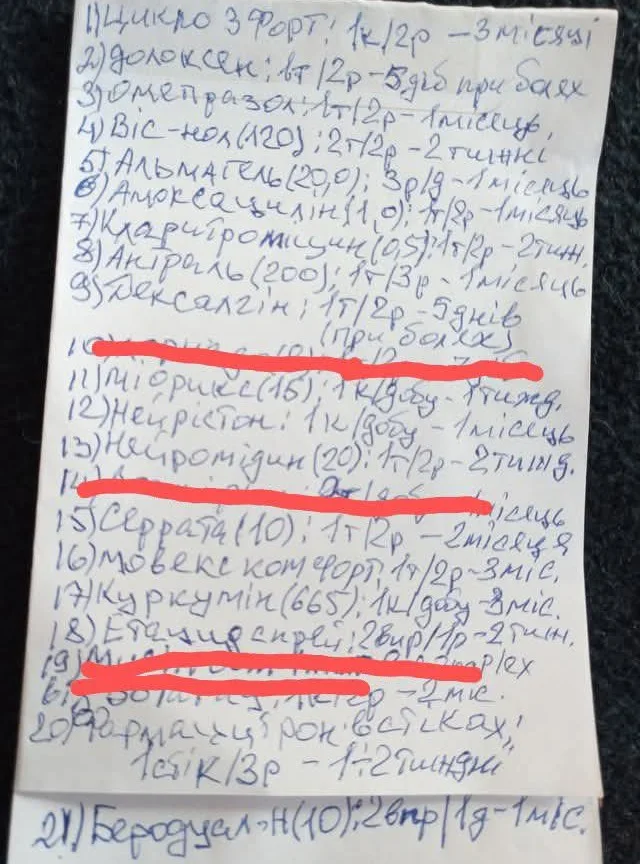 1) Цикло 3 Форт: 1к/2р – 3 місяці
2) Долоксен: 1т/2р – 5 діб при болях
3) Омепразол: 1т/2р – 1 місяць,
4) Віс-нол (120): 2т/2р – 2 тижні
5) Альмагель (20,0): 3р/д – 1 місяць
6) Амоксацилін (1,0): 1т/2р – 1 місяць
7) Кларитромицин (0,5): 1т/2р – 2 тиж.
8) Антраль (200): 1т/3р – 1 місяць
9) Дексалгін: 1т/2р – 5 днів
(при болях)
10)
11) Міорикс (15): 1к/добу – 1 тижд.
12) Нейрістон: 1к/добу – 1 місяць
13) Нейромідин (20): 1т/2р – 2 тижд.
14) місяць
15) Серрата (10): 1т/2р – 2 місяця
16) Мовекс комфорт: 1т/2р – 3 міс.
17) Куркумін (665): 1к/добу – 3 міс.
18) Етацид спрей: 2впр/1р – 2 тиж.
19)
– 2 міс.
20) Фармацитрон в стіках:
1 стік/3р – 1÷2 тиждні
21) Беродуал-Н (10): 2впр/1д – 1 міс.